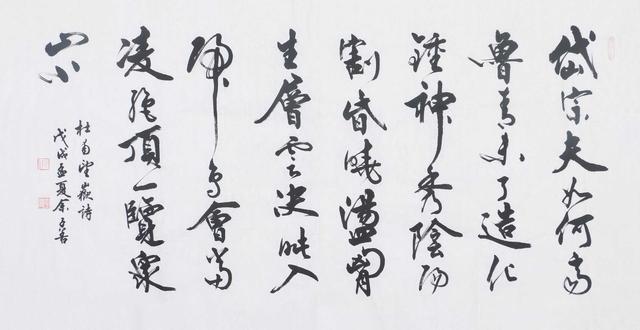 岱宗夫如何齊
魯青未了造化
鍾神秀陰陽
割昏曉盪胷
生層雲決眥入
歸鳥會當
凌絕頂一覽衆
山小
杜甫望嶽詩
戊戌孟夏余